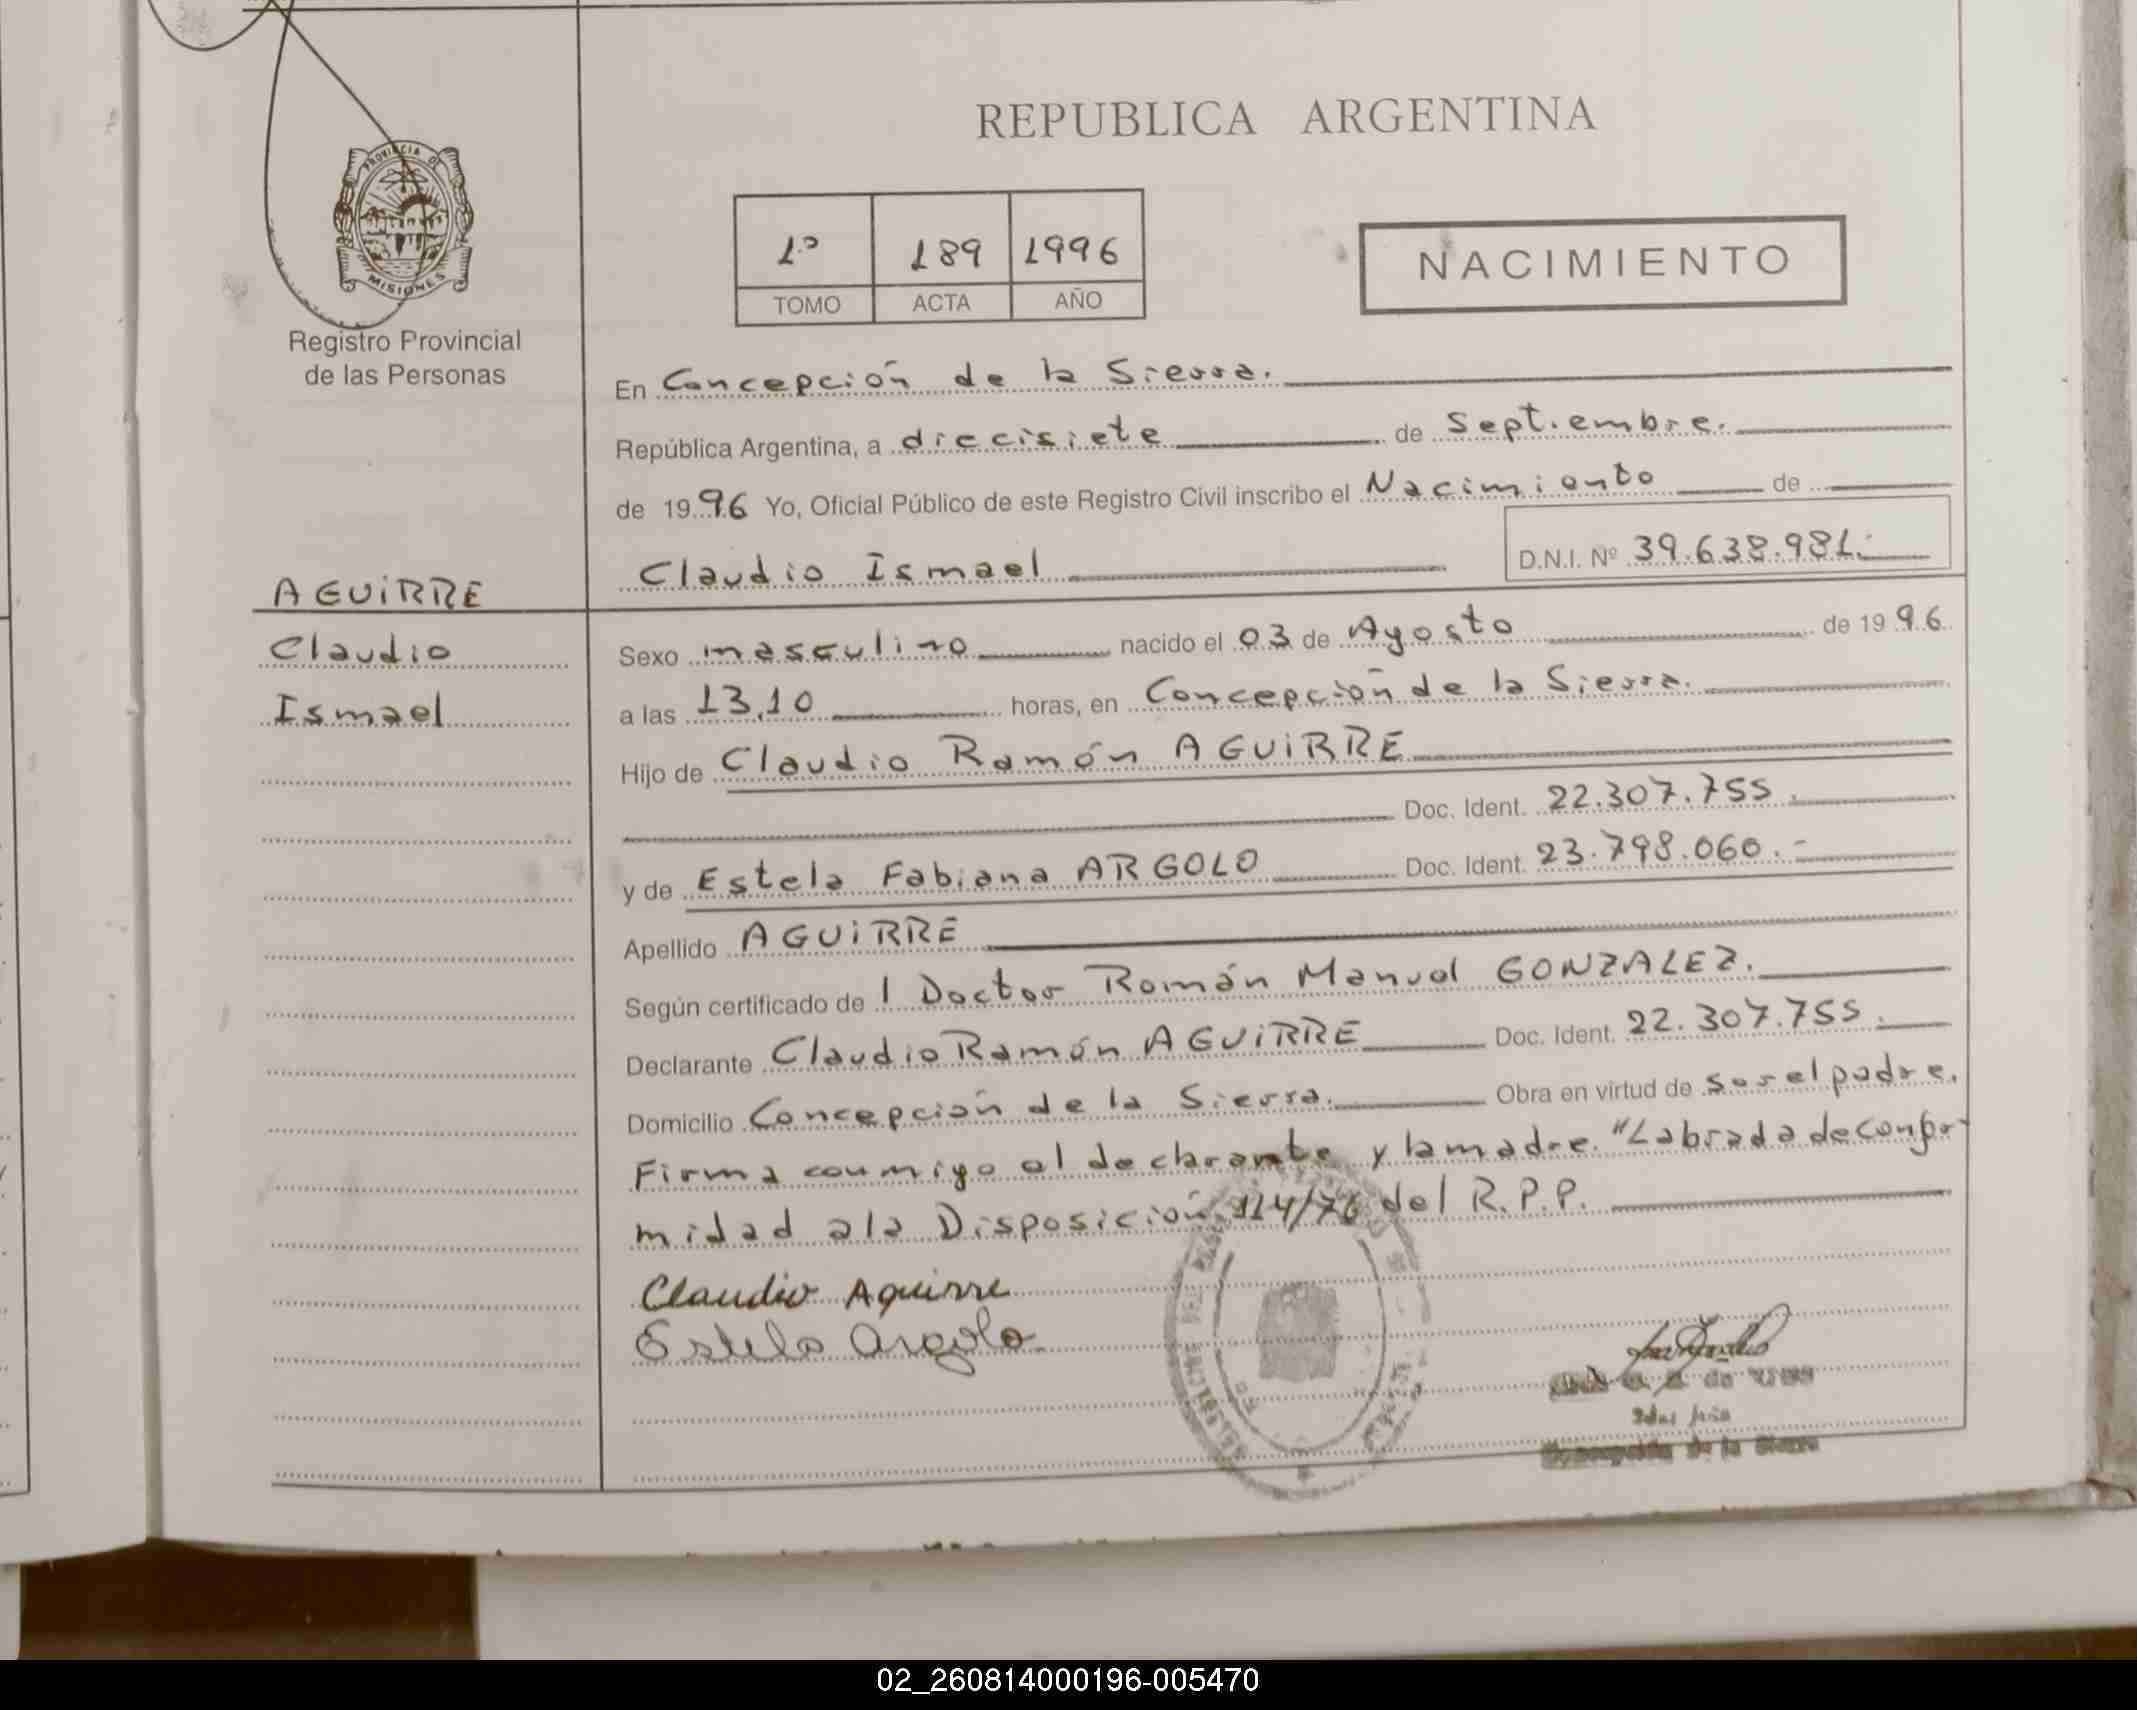 REPUBLICA ARGENTINA
PROVINCIA DE
MISIONES
Registro Provincial
de las Personas
1º 189 1996
TOMO ACTA AÑO
NACIMIENTO
En Concepción de la Sierra.
República Argentina, a diecisiete de Septiembre.
de 1996 Yo, Oficial Público de este Registro Civil inscribo el Nacimiento de
Claudio Ismael D.N.I. Nº 39.638.981.-
AGUIRRE
Claudio
Ismael
Sexo masculino nacido el 03 de Agosto de 1996
a las 13,10 horas, en Concepción de la Sierra.
Hijo de Claudio Ramón AGUIRRE
Doc. Ident. 22.307.755.
y de Estela Fabiana ARGOLO Doc. Ident. 23.798.060.-
Apellido AGUIRRE
Según certificado de l Doctor Román Manuel GONZALEZ.
Declarante Claudio Ramón AGUIRRE Doc. Ident. 22.307.755.
Domicilio Concepción de la Sierra. Obra en virtud de ser el padre.
Firma conmigo el declarante y la madre. "Labrada de Confor-
midad a la Disposición 114/76 del R.P.P.
Claudio Aguirre
Estela Argolo
de la Sierra
02_260814000196-005470